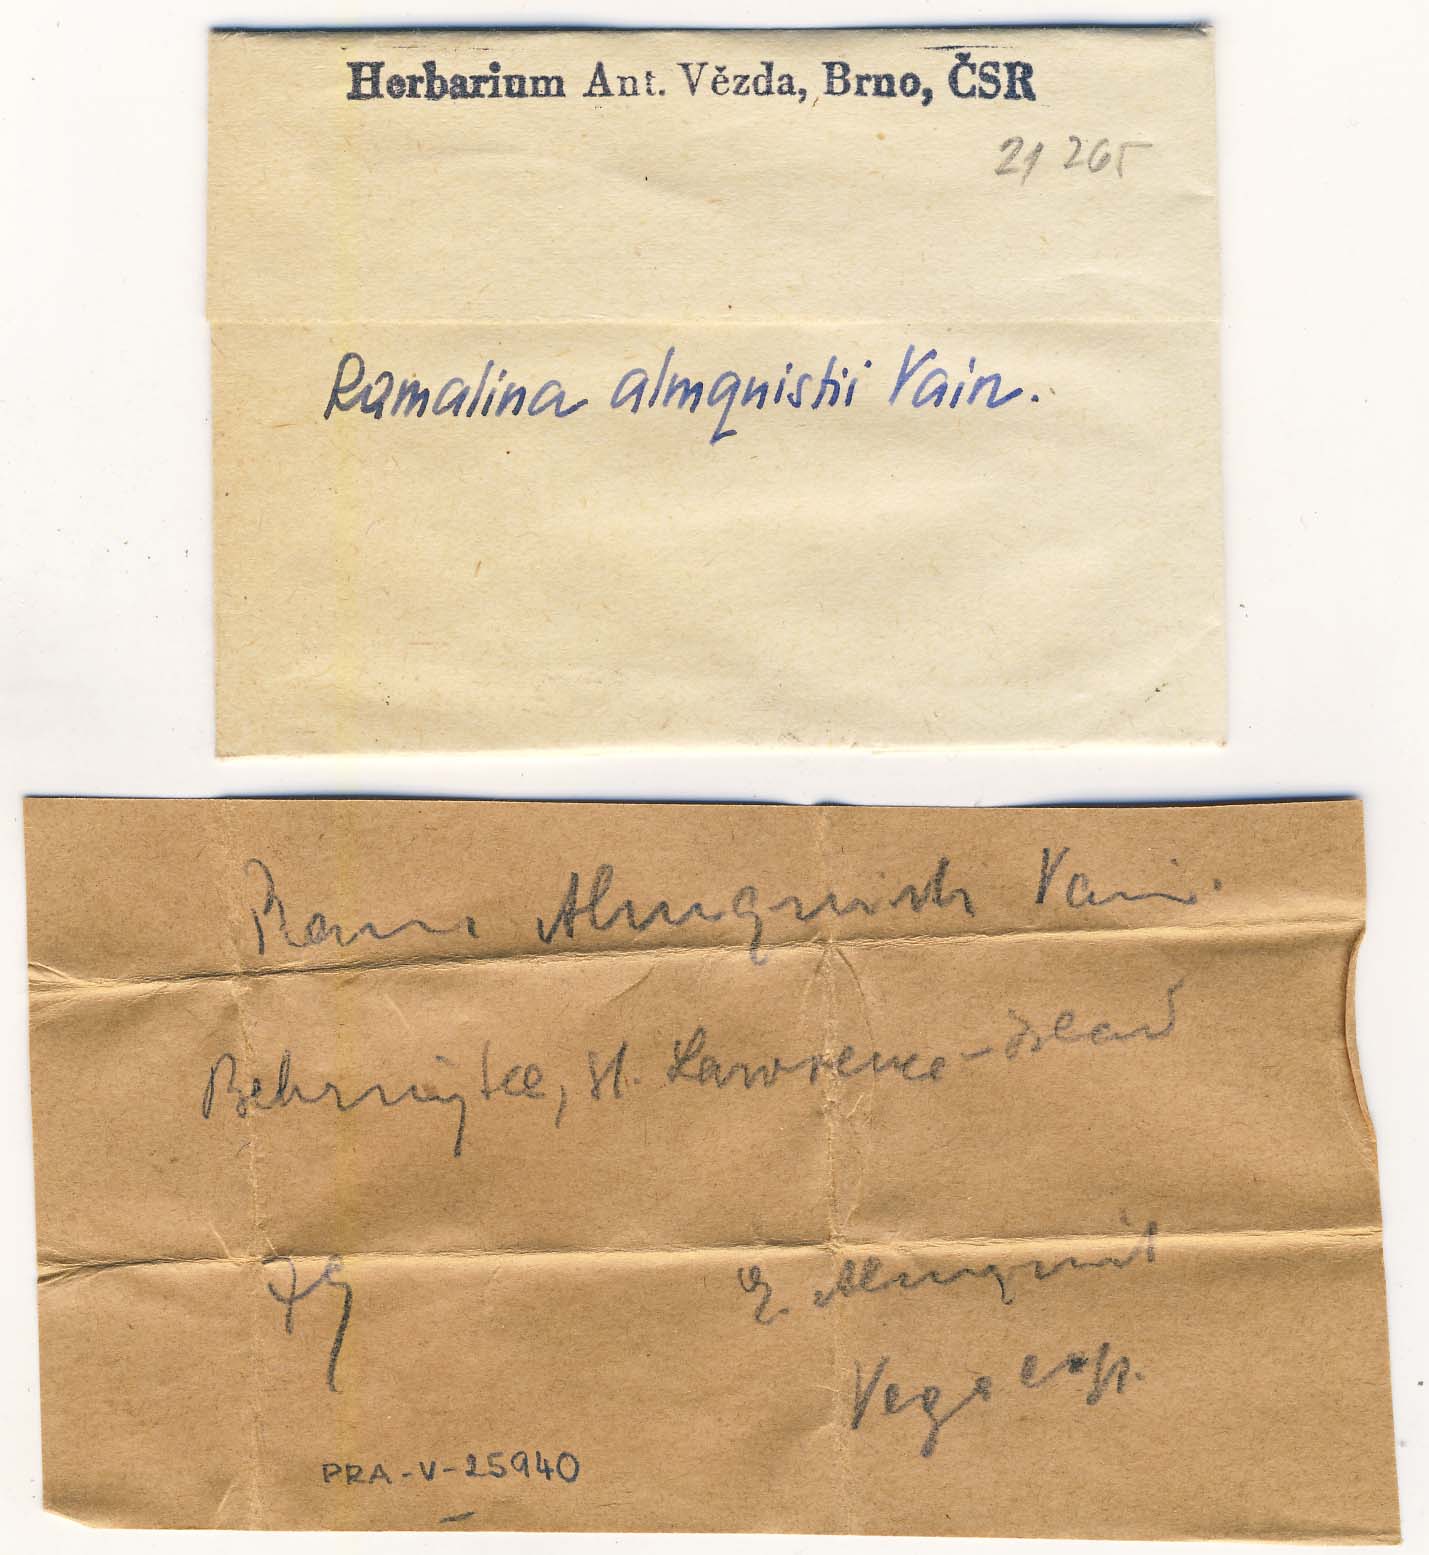 Herbarium Ant. Vězda, Brno, ČSR
21 265
Ramalina almquistii Vain.
Ram Almquistii Vain.
St. Lawrence-Island
79
E. Almquist
Vega exp.
PRA-V-25940